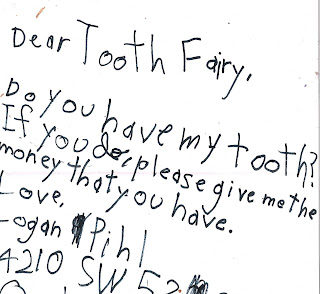 Dear Tooth Fairy,
Do you have my tooth?
If you do, please give me the
money that you have.
Love,
Logan Pihl
4210 SW 52